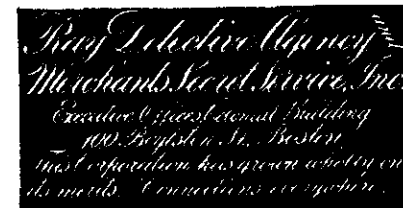 Ray Detective Agency
Merchants Secret Service, Inc.
Executive Offices Colonial Building
100 Boylston St., Boston
corporation has grown wholly on
its merits. Connections everywhere.